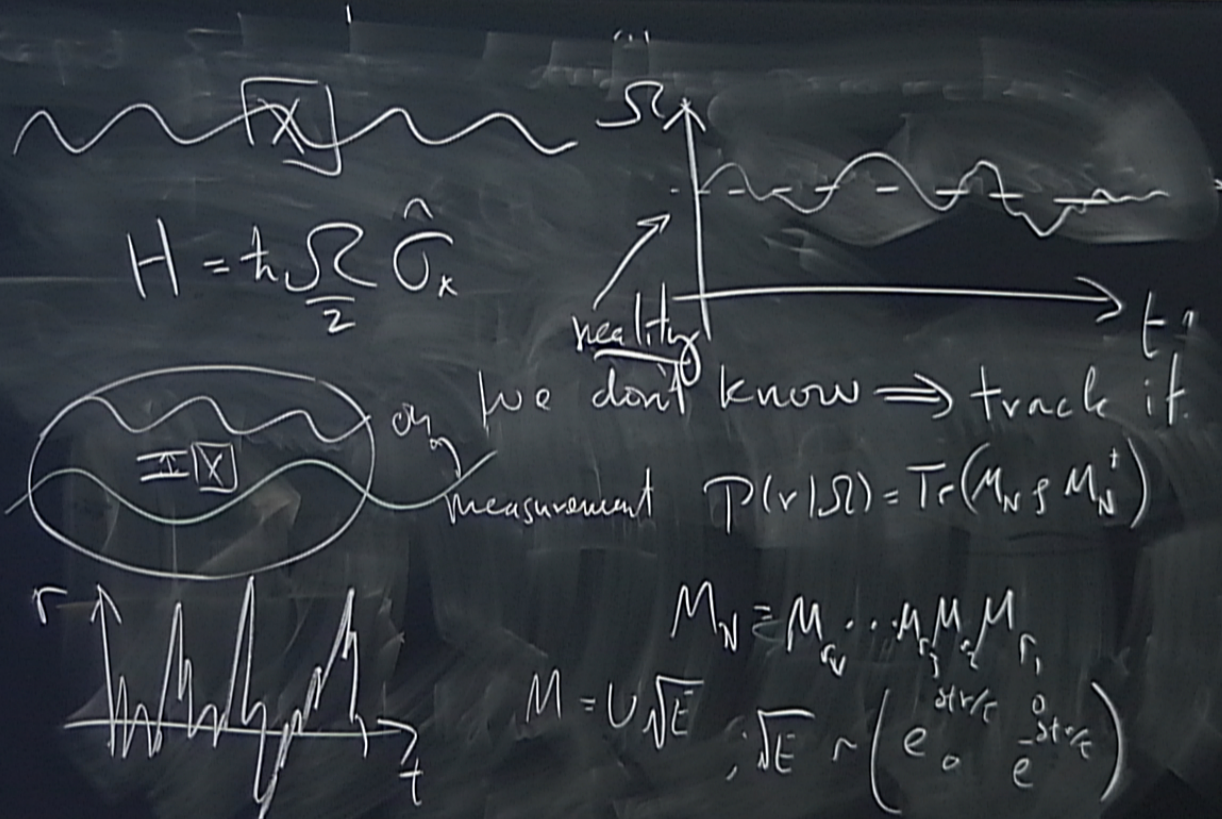 X
Ω
H = ħ Ω/2 σ̂ₓ
t
reality
we don't know ⟹ track it.
X
measurement P(r|Ω) = Tr(M_N ρ M_N†)
r
M_N ≡ M_{r_N} ⋯ M_{r_3} M_{r_2} M_{r_1}
M = U√E ; √E ~ ( e^{δt r/τ} 0
0 e^{-δt r/τ} )
t